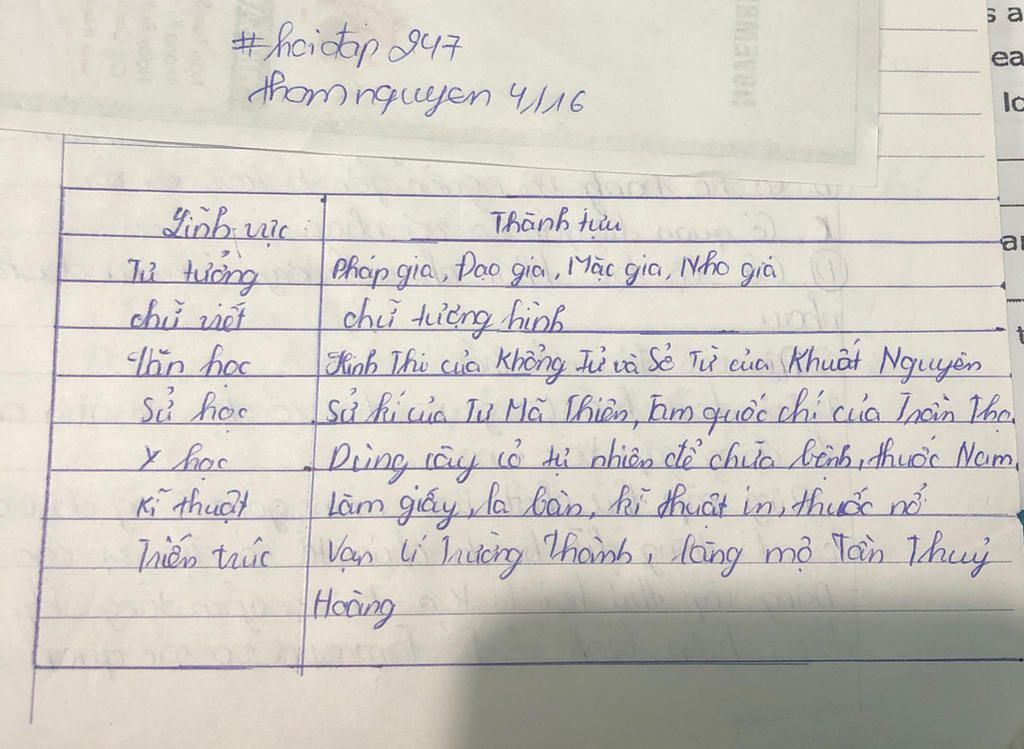 #hoidap247
thomnguyen 4116
Lĩnh vực Thành tựu
Tư tưởng Pháp gia, Đạo gia, Mặc gia, Nho giá
chữ viết chữ tượng hình
Văn học Kinh Thi của Khổng Tử và Sở Từ của Khuất Nguyên
Sử học Sử kí của Tư Mã Thiên, Tam quốc chí của Trần Thọ.
Y học Dùng cây cỏ tự nhiên để chữa bệnh, thuốc Nam.
Kĩ thuật Làm giấy, la bàn, kĩ thuật in, thuốc nổ
Kiến trúc Vạn lí Trường Thành, lăng mộ Tần Thuỷ
Hoàng
NOVEMB
s a
ea